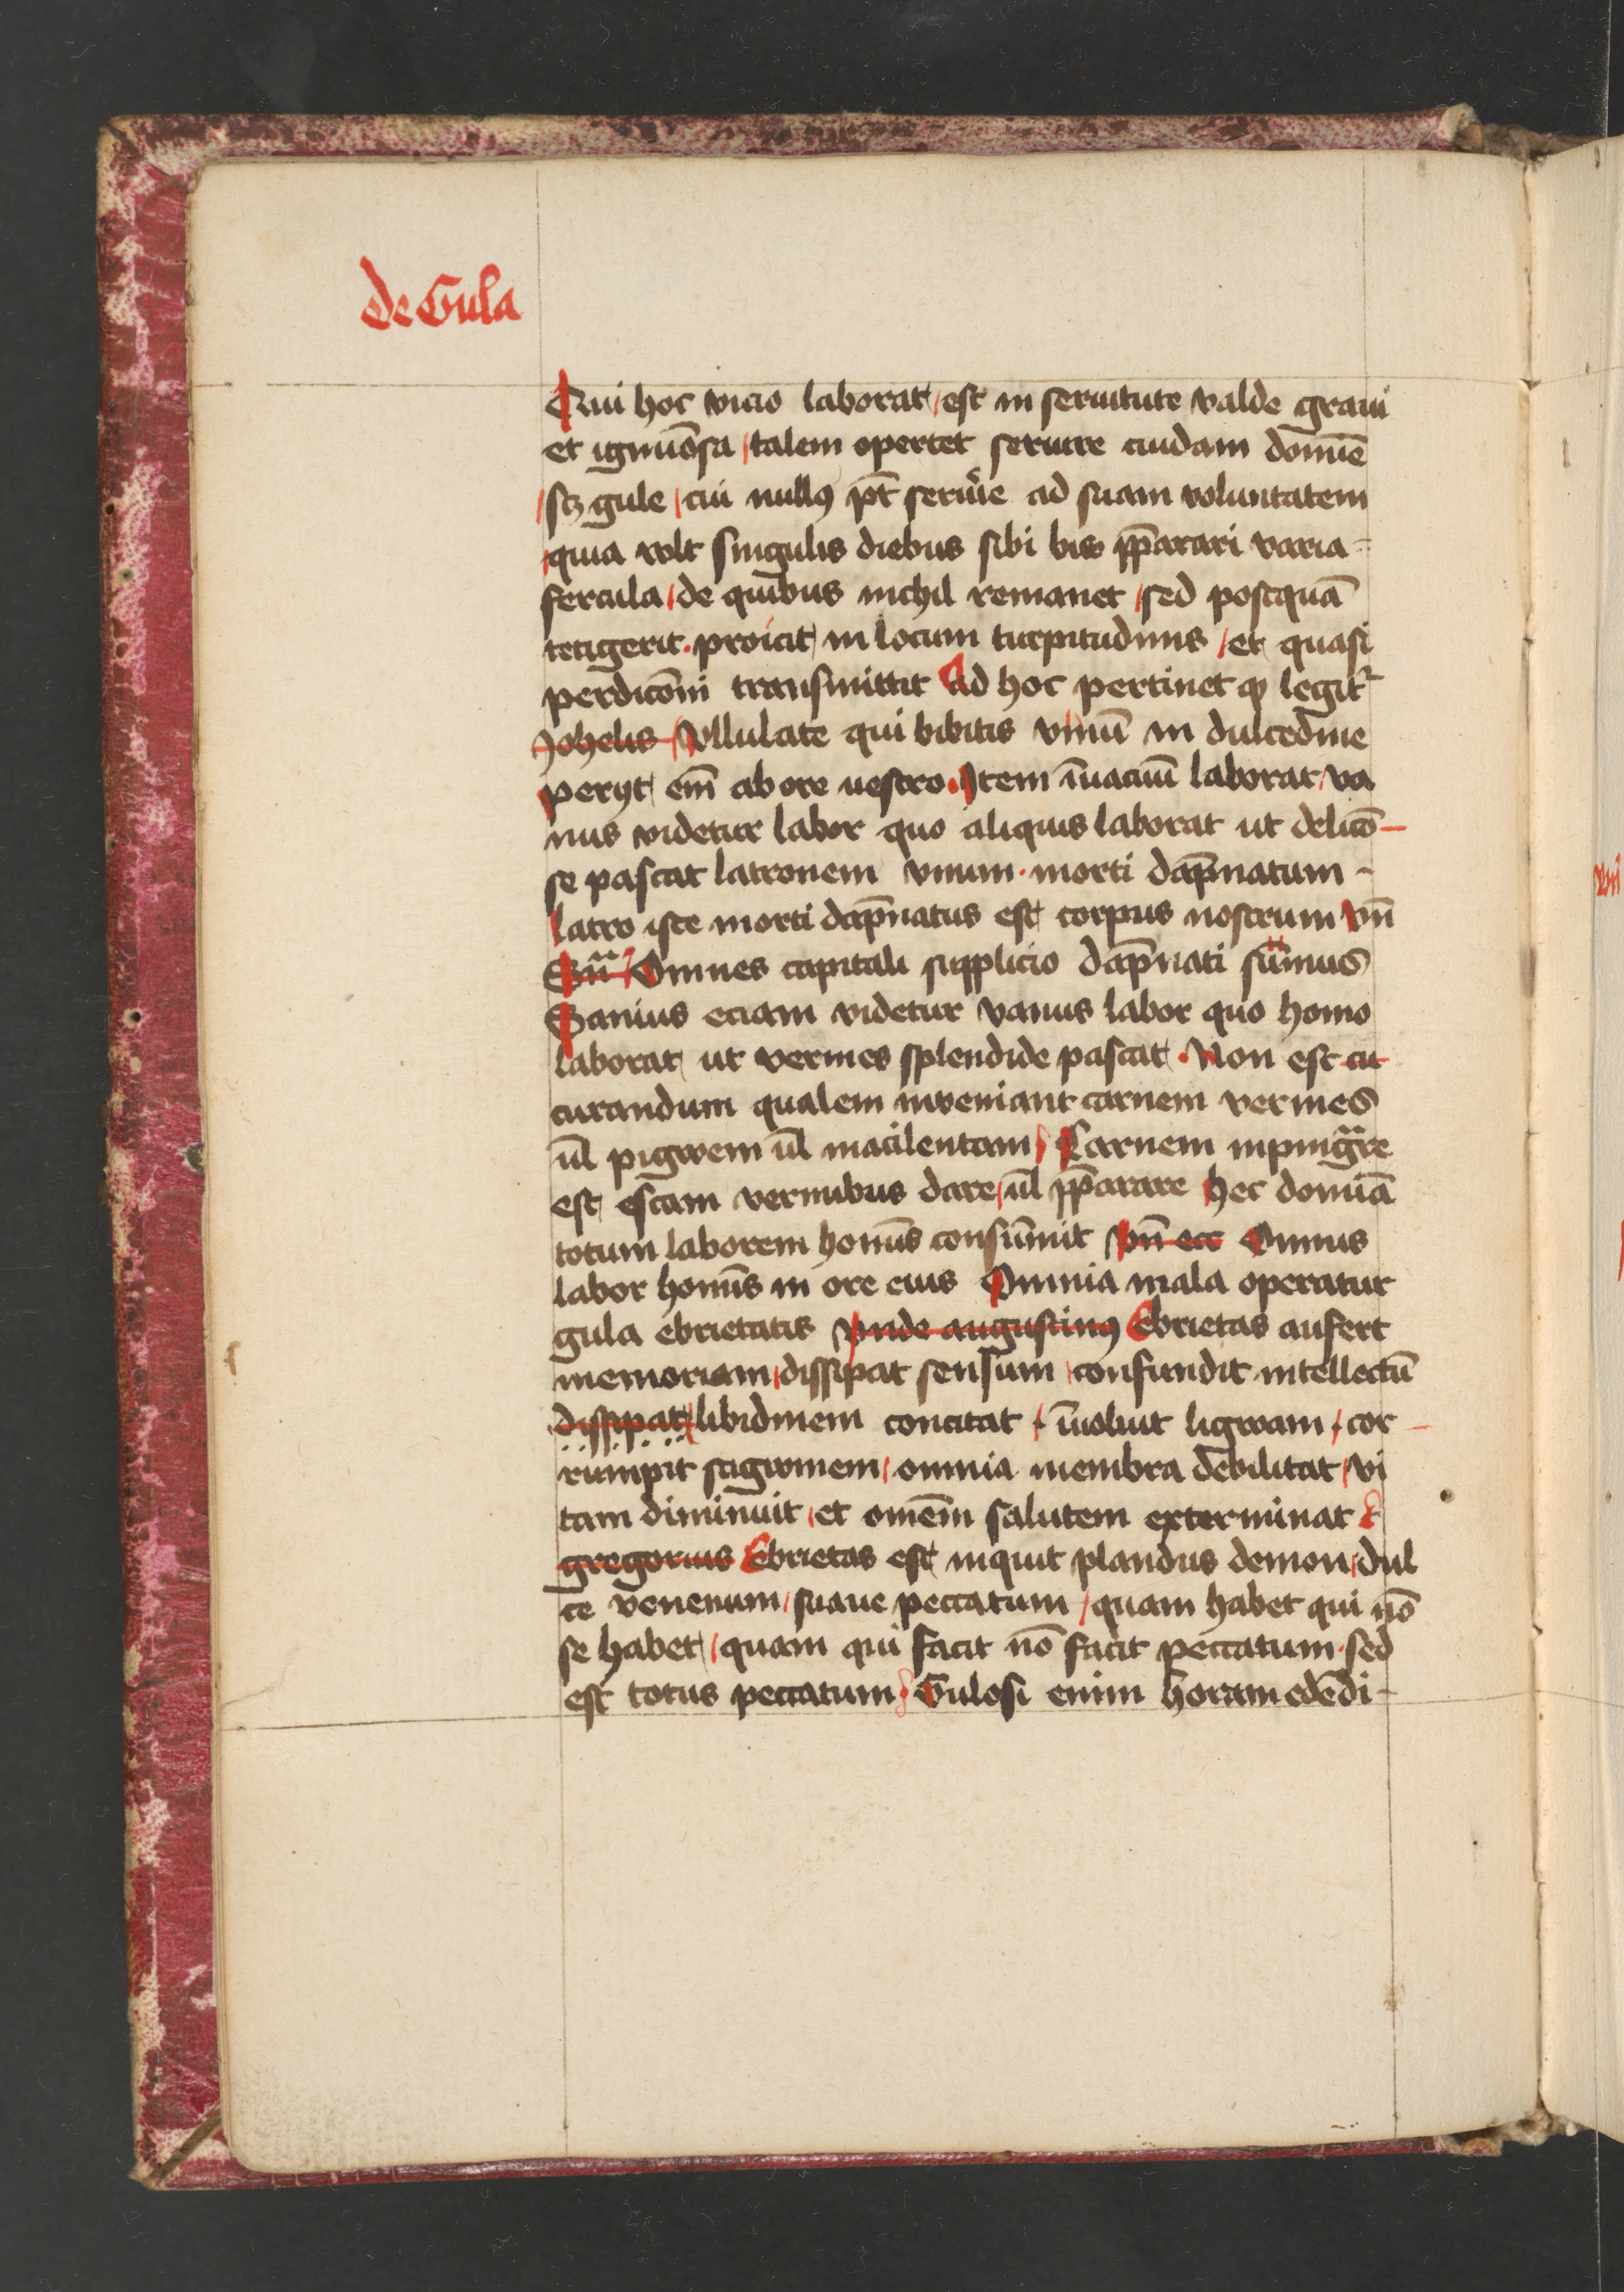 de Gula
Qui hoc vicio laborat / est in seruitute valde graui
et ignuōsa / talem opertet seruire cuidam domīe
/ scꝫ gule / cui nullꝯ pt̄ seruīe ad suam voluntatem
/ quia vult singulis diebus sibi bis p̄parari varia =
fercula / de quibus nichil remanet / sed postquā
tetigerit . proicit in locum turpitudinis / et quasi
perdicōni transmittit Ad hoc pertinet ꝙ legit᷑
Johelis / Vllulate qui bibitis vinū in dulcedine
peryt em̄ ab ore uestro . Item īuacuū laborat / va
nus videtur labor quo aliquis laborat ut delicō –
se pascat latronem vnum . morti dāpnatum –
latro iste morti dāpnatus est corpus nostrum vn̄
Sn̄ᵃ / Omnes capitali supplicio dāpnati sūmus
Sanius eciam videtur vanus labor quo homo
laborat ut vermes splendide pascat . Non est cu
curandum qualem inveniant carnem vermes
ul̄ pigwem ul̄ macilentam / Carnem inpingᵃre
est escam vermibus dare / ul̄ p̄parare hec domīa
totum laborem homīs consūmit vn̄ ecc Omnis
labor homīs in ore eius Omnia mala operatur
gula ebrietatis vnde augustinꝯ Ebrietas aufert
memoriam / dissipat sensum / confundit intellectū
dissipat / libidinem concitat / īuoluit ligwam / cor –
rumpit sagwinem / omnia membra debilitat / vi
tam diminuit / et omēm salutem exterminat
gregorius Ebrietas est inquit plandus demon / dul
ce venenum / suaue peccatum / quam habet qui nō
se habet / quam qui facit nō facit peccatum . sed
est totus peccatum / Gulosi enim horam edēdi –